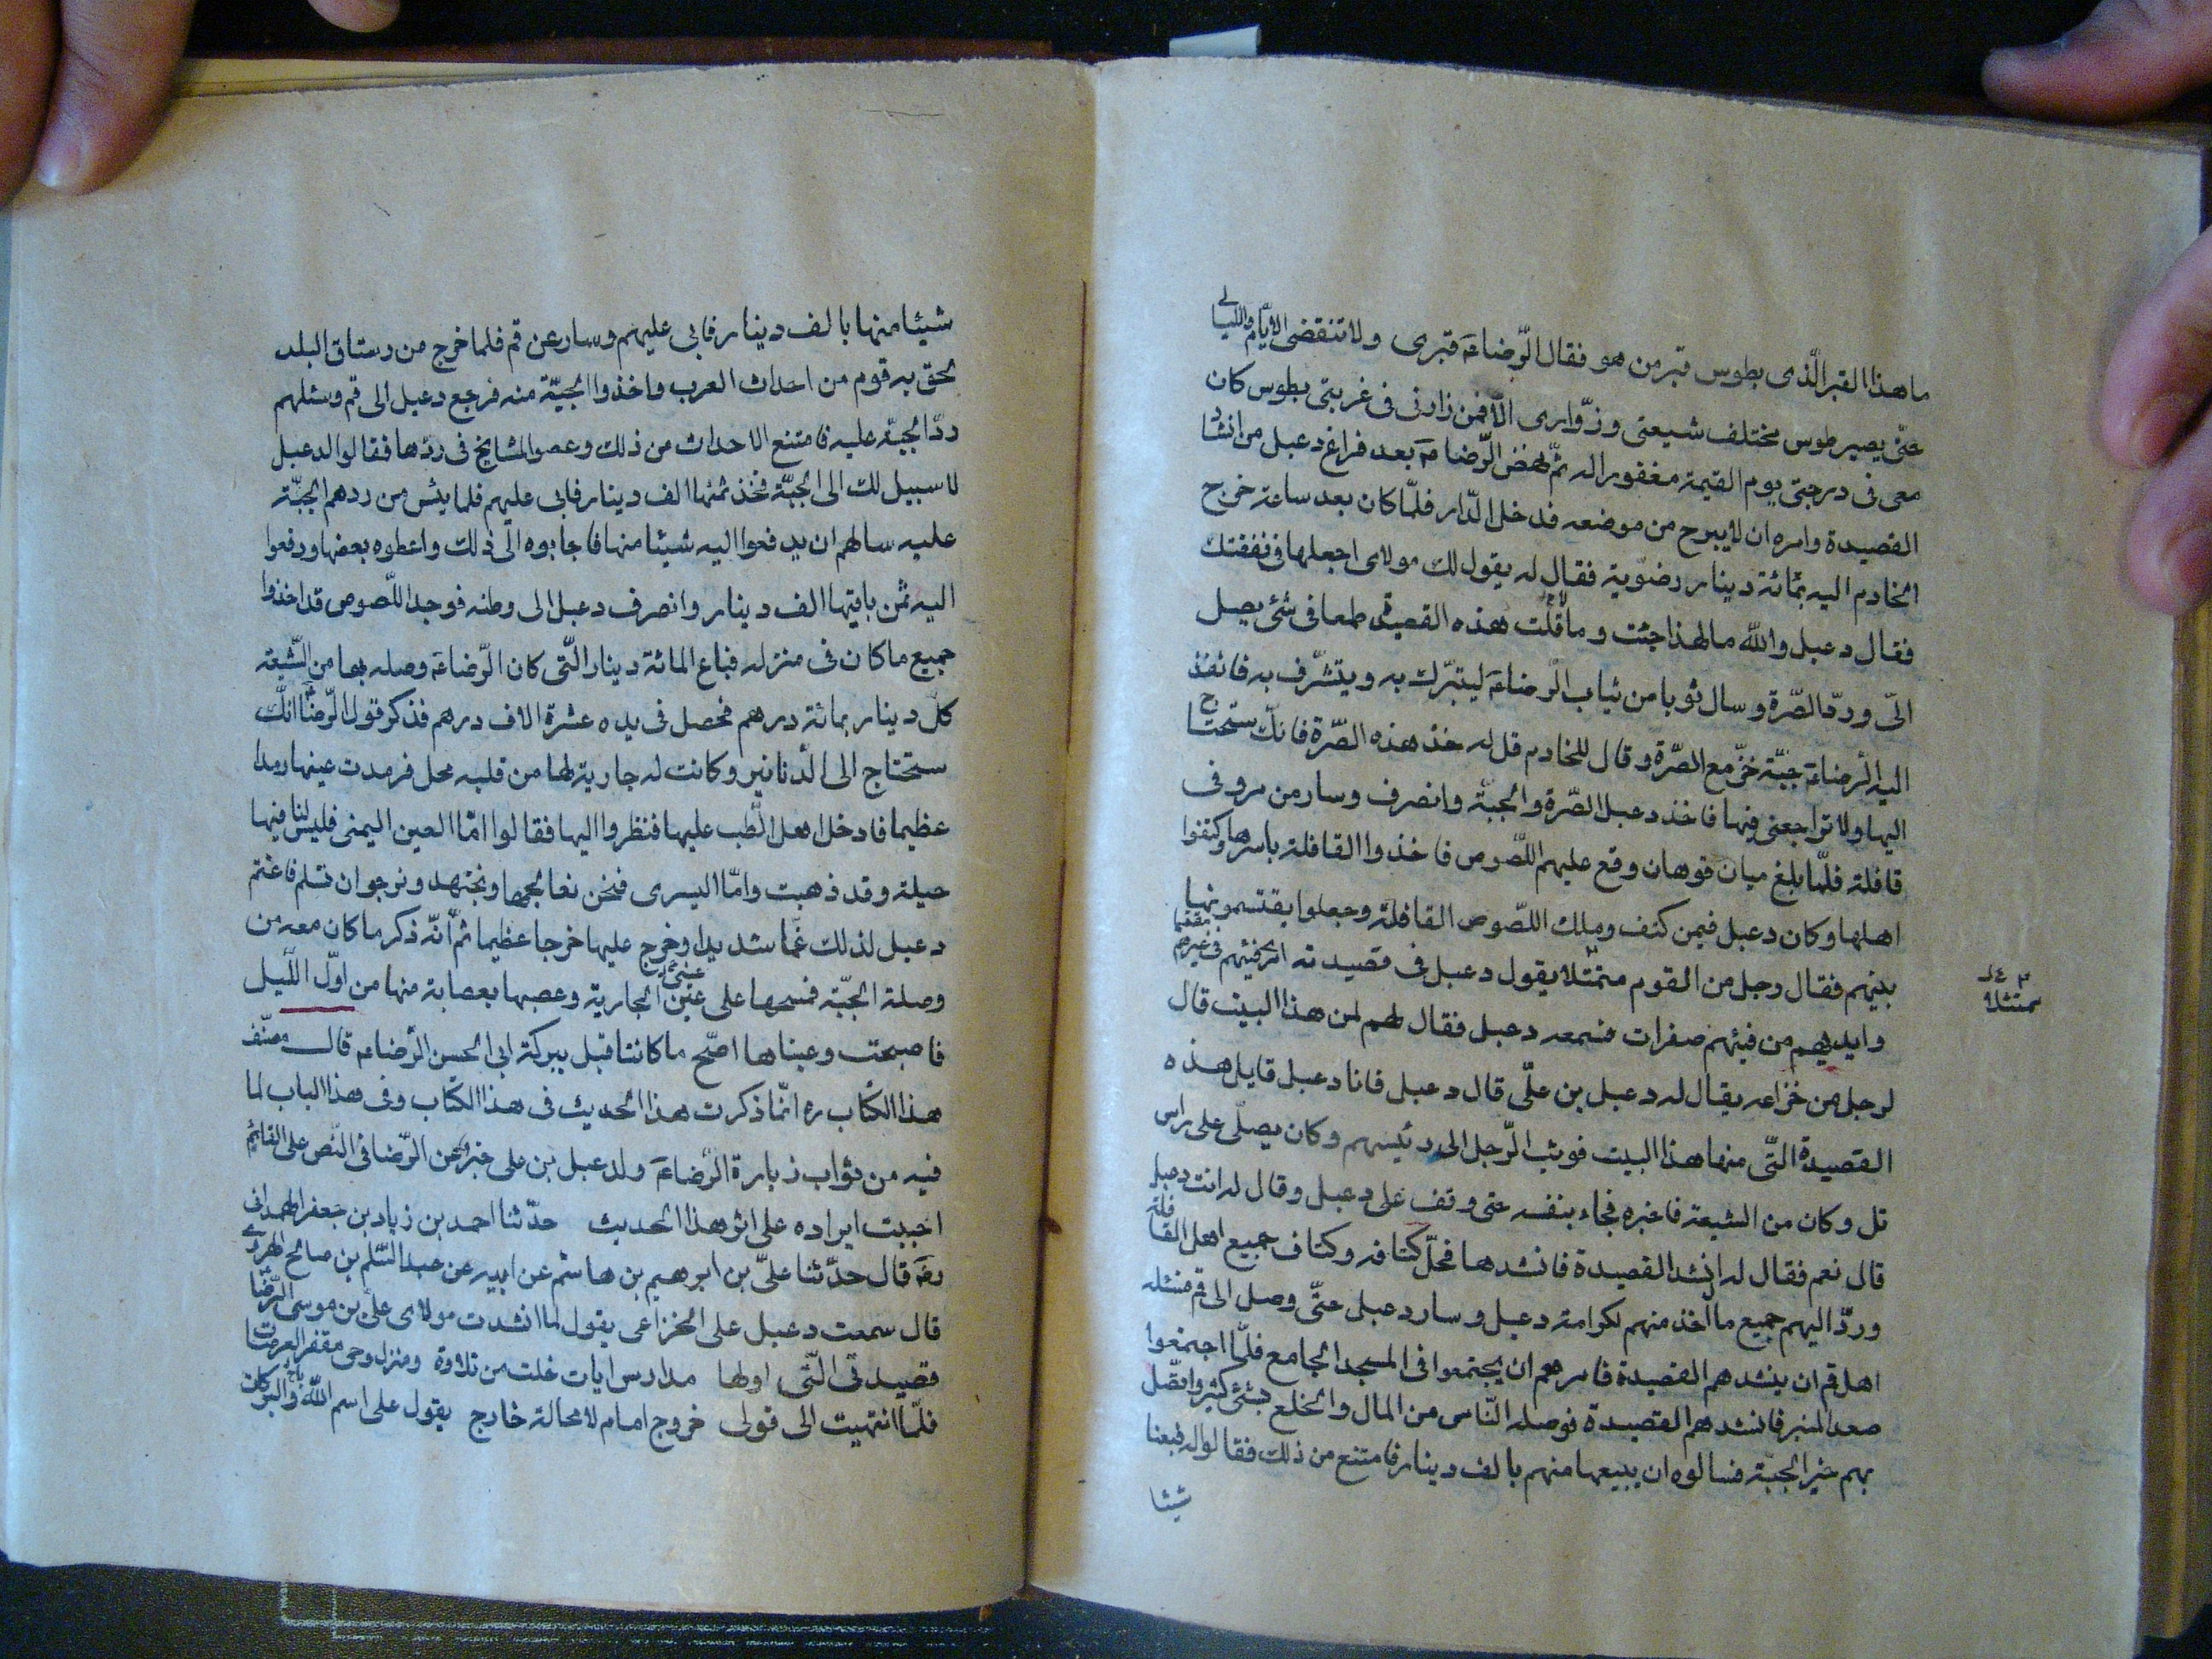 ما هذا القبر الّذى بطوس قبر من هو فقال الرّضاءَ قبرى ولا تنقضى الايّام والليالى
حتّى يصير طوس مختلف شيعتى وزوّارى الا فمن زارنى فى غربتى بطوس كان
معى فى درجتى يوم القيمة مغفورا له ثمّ نهض الرّضا عَ بعد فراغ دعبل من انشاد
القصيدة وامره ان لا يبرح من موضعه فدخل الدّار فلمّا كان بعد ساعة خرج
الخادم اليه بمائة دينار رضويه فقال له يقول لك مولاى اجعلها فى نفقتك
فقال دعبل والله ما لهذا جئت وما قلت هذه القصيدة طمعا فى شئ يصل
الىّ وردّ الصّرة وسال ثوبا من ثياب الرضاعَ ليتبرّك به ويتشرّف به فانفذ
اليه الرضاعَ جبّة خزّ مع الصّرة وقال للخادم قل له خذ هذه الصّرة فانّك ستحتاج
اليها ولا تراجعنى فيها فاخذ دعبل الصّرة والجبّة وانصرف وسار من مرو فى
قافلة فلمّا بلغ ميان قوهان وقع عليهم اللّصوص فاخذوا القافلة باسرها وكتفوا
اهلها وكان دعبل فيمن كتف وملك اللصّوص القافلة وجعلوا يقتسمونها
بينهم فقال رجل من القوم متمثلا يقول دعبل فى قصيدته ارى فيئهم فى غيرهم متقسّما
متمثلا
وايديهم من فيئهم صفرات فسمعه دعبل فقال لهم لمن هذا البيت قال
لرجل من خزاعه يقال له دعبل بن علّى قال دعبل فانا دعبل قايل هذه
القصيدة التّى منها هذا البيت فوثب الرّجل الى رئيسهم وكان يصلّى على راس
تل وكان من الشيعة فاخبره فجاء بنفسه حتى وقف على دعبل وقال له انت دعبل
قال نعم فقال له انشد القصيدة فانشدها فحلّ كتافه وكتاف جميع اهل القافلة
وردّ اليهم جميع ما اخذ منهم لكرامة دعبل وسار دعبل حتّى وصل الى قم فسئله
اهل قم ان ينشدهم القصيدة فامرهم ان يجتمعوا فى المسجد الجامع فلمّا اجتمعوا
صعد المنبر فانشدهم القصيدة فوصله النّاس من المال والخلع بشئ كثير واتصّل
بهم خبر الجبّة فسالوه ان يبيعها منهم بالف دينار فامتنع من ذلك فقالوا له فبعنا
شيئا
شيئا منها بالف دينار فابى عليهم وسار عن قم فلما خرج من رستاق البلد
لحق به قوم من احداث العرب واخذوا الجبّة منه فرجع دعبل الى قم وسئلهم
ردّ الجبّة عليه فامتنع الاحداث من ذلك وعصوا المشايخ فى ردّها فقالوا لدعبل
لا سبيل لك الى الجبّة فخذ ثمنها الف دينار فابى عليهم فلما يئس من ردهم الجبّة
عليه سالهم ان يدفعوا اليه شيئا منها فاجابوه الى ذلك واعطوه بعضها ودفعوا
اليه ثمن باقيها الف دينار وانصرف دعبل الى وطنه فوجد اللّصوص قد اخذوا
جميع ما كان فى منزله فباع المائة دينار التّى كان الرّضاعَ وصله بها من الشّيعة
كلّ دينار بمائة درهم فحصل فى يده عشرة الاف درهم فذكر قول الرّضا انّك
ستحتاج الى الدّنانير وكانت له جارية لها من قلبه محل فرمدت عينها رمدا
عظيما فادخل اهل الطّب عليها فنظروا اليها فقالوا امّا العين اليمنى فليس لنا فيها
حيلة وقد ذهبت وامّا اليسرى فنحن نعالجها ونجتهد ونرجوا ان تسلم فاغتم
دعبل لذلك غمّا شديدا وخرج عليها خرجا عظيما ثمّ انّه ذكر ما كان معه من
وصلة الجبّة فمسحها على عين الجارية وعصبها بعصابة منها من اوّل اللّيل
فاصبحت وعيناها اصّح ما كانتا قبل ببركة ابى الحسن الرّضاع قال مصنّف
هذا الكتاب ره انّما ذكرت هذا الحديث فى هذا الكتاب وفى هذا الباب لما
فيه من ثواب زيارة الرّضاعَ ولدعبل بن على خبر عن الرّضا فى النّص على القايم
احببت ايراده على اثر هذا الحديث حدّثنا احمد بن زياد بن جعفر الهمدانى
رضَ قال حدّثنا علىّ بن ابرهيم بن هاشم عن ابيه عن عبد السّلم بن صالح الهروى
قال سمعت دعبل على الخزاعى يقول لما انشدت مولاى علىّ بن موسى الرّضا
قصيدتى التّى اولها مدارس ايات خلت من تلاوة ومنزل وحى مقفر العرصات
فلمّا انتهيت الى قولى خروج امام لا محالة خارج يقول على اسم الله والبركات